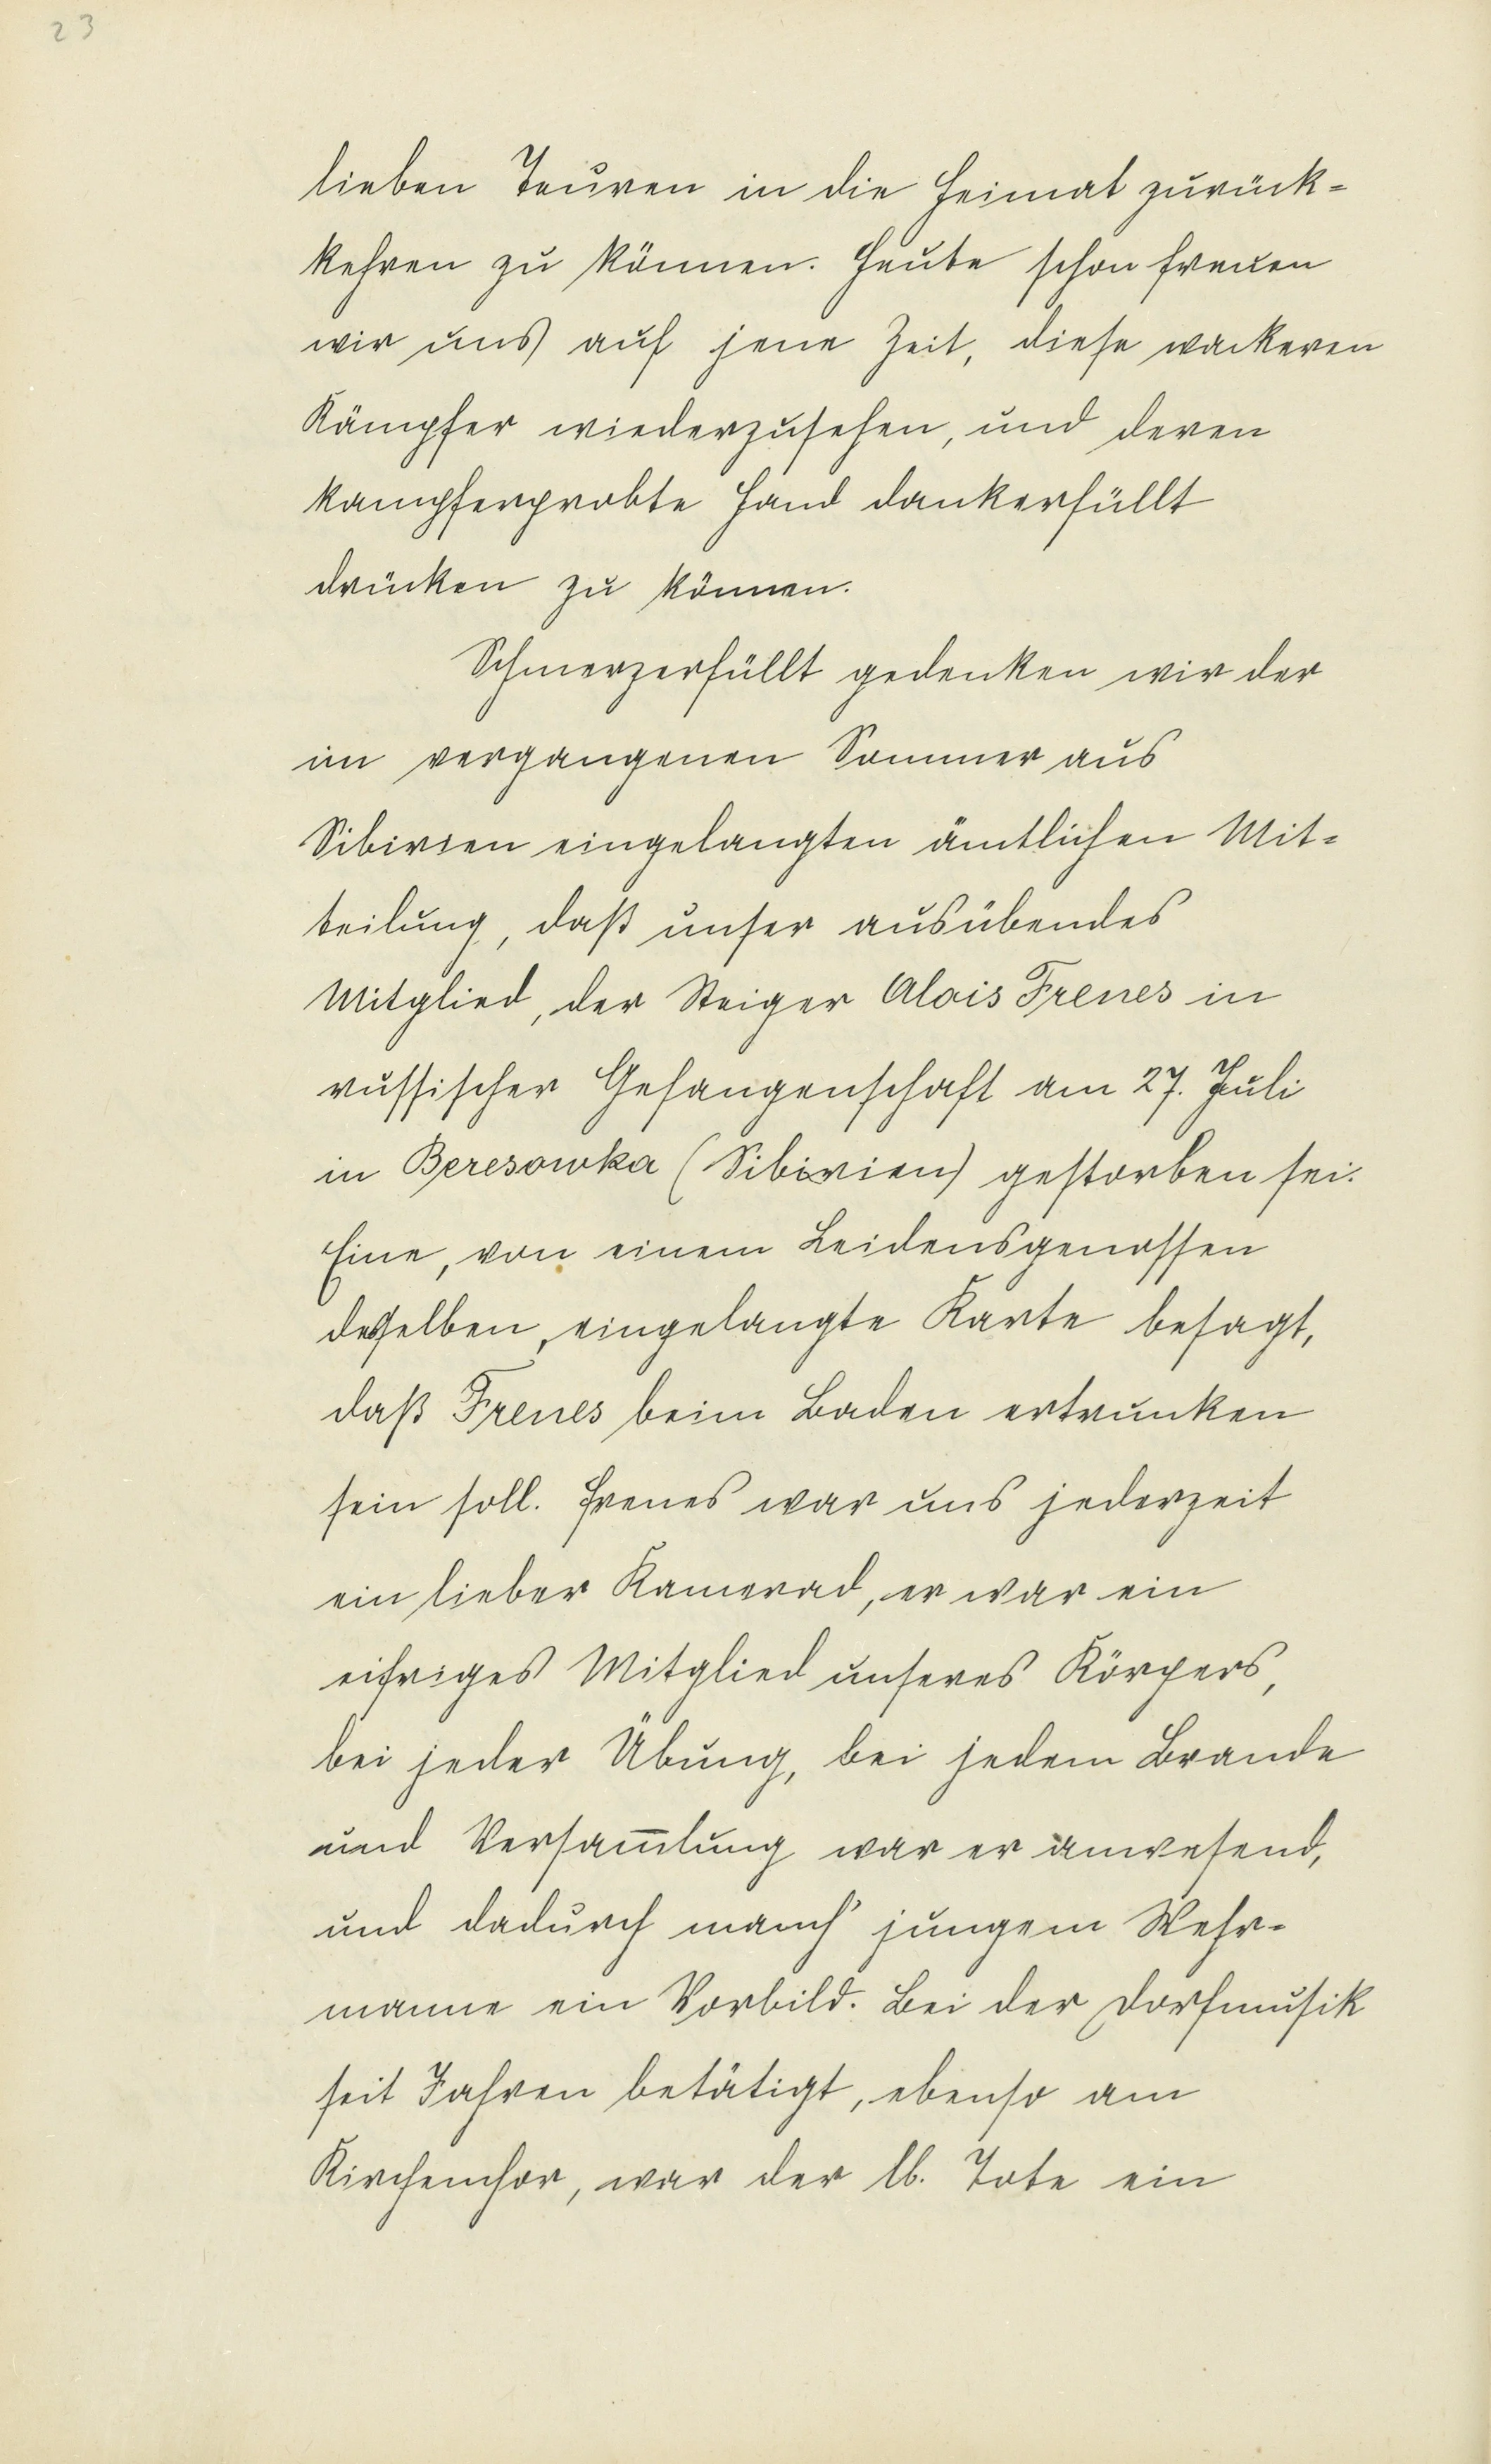 23
lieben Teuren in die Heimat zurück-
kehren zu können. Heute schon freuen
wir uns auf jene Zeit, diese wackeren
Kämpfer wiederzusehen, und deren
kampferprobte Hand dankerfüllt
drücken zu können.
Schmerzerfüllt gedenken wir der
im vergangenen Sommer aus
Sibirien eingelangten ämtlichen Mit-
teilung, daß unser ausübendes
Mitglied, der Steiger Alois Frenes in
russischer Gefangenschaft am 27. Juli
in Beresowka (Sibirien) gestorben sei.
Eine, von einem Leidensgenossen
desselben, eingelangte Karte besagt,
daß Frenes beim Baden ertrunken
sein soll. Frenes war uns jederzeit
ein lieber Kamerad, er war ein
eifriges Mitglied unseres Körpers,
bei jeder Übung, bei jedem Brande
und Versam̅lung war er anwesend,
und dadurch manch' jungem Wehr-
manne ein Vorbild. Bei der Dorfmusik
seit Jahren betätigt, ebenso am
Kirchenchor, war der lb. Tote ein